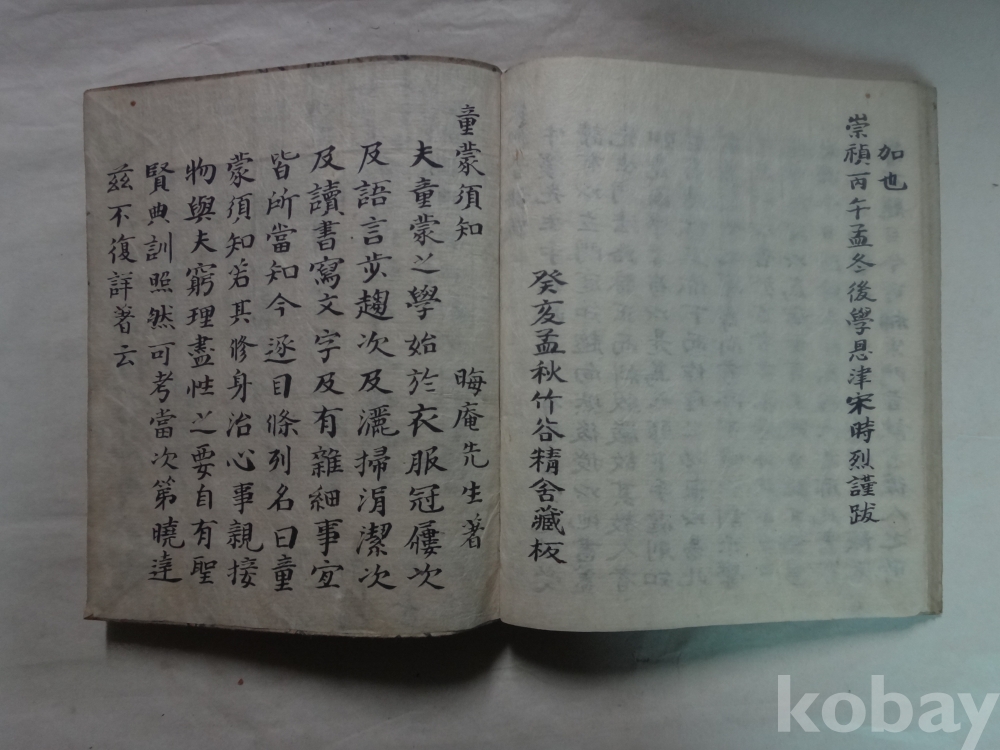 加也
崇禎丙午孟冬後學恩津宋時烈謹跋
癸亥孟秋竹谷精舍藏板
童蒙須知 晦庵先生著
夫童蒙之學始於衣服冠屨次
及語言步趨次及灑掃涓潔次
及讀書寫文字及有雜細事宜
皆所當知今逐目條列名曰童
蒙須知若其修身治心事親接
物與夫窮理盡性之要自有聖
賢典訓照然可考當次第曉達
茲不復詳著云
kobay